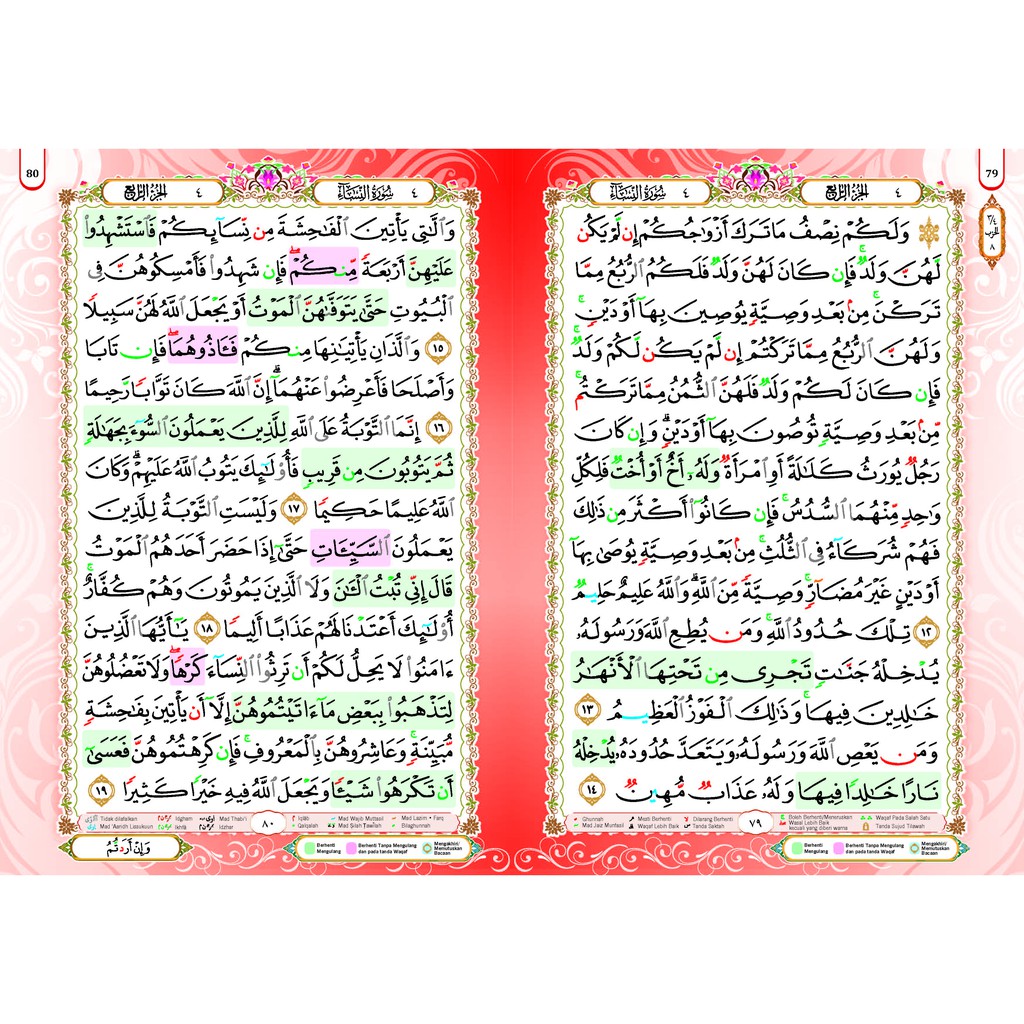 79
٤ سُورَةُ النِّسَاءِ ٤
الجُزْءُ الرَّابِعُ
٣/٤ الحزب ٨
۞ وَلَكُمْ نِصْفُ مَا تَرَكَ أَزْوَٰجُكُمْ إِن لَّمْ يَكُن
لَّهُنَّ وَلَدٌ ۚ فَإِن كَانَ لَهُنَّ وَلَدٌ فَلَكُمُ ٱلرُّبُعُ مِمَّا
تَرَكْنَ ۚ مِنۢ بَعْدِ وَصِيَّةٍ يُوصِينَ بِهَآ أَوْ دَيْنٍ ۚ
وَلَهُنَّ ٱلرُّبُعُ مِمَّا تَرَكْتُمْ إِن لَّمْ يَكُن لَّكُمْ وَلَدٌ ۚ
فَإِن كَانَ لَكُمْ وَلَدٌ فَلَهُنَّ ٱلثُّمُنُ مِمَّا تَرَكْتُم ۚ
مِّنۢ بَعْدِ وَصِيَّةٍ تُوصُونَ بِهَآ أَوْ دَيْنٍ ۗ وَإِن كَانَ
رَجُلٌ يُورَثُ كَلَٰلَةً أَوِ ٱمْرَأَةٌ وَلَهُۥٓ أَخٌ أَوْ أُخْتٌ فَلِكُلِّ
وَٰحِدٍ مِّنْهُمَا ٱلسُّدُسُ ۚ فَإِن كَانُوٓا۟ أَكْثَرَ مِن ذَٰلِكَ
فَهُمْ شُرَكَآءُ فِى ٱلثُّلُثِ ۚ مِنۢ بَعْدِ وَصِيَّةٍ يُوصَىٰ بِهَآ
أَوْ دَيْنٍ غَيْرَ مُضَآرٍّ ۚ وَصِيَّةً مِّنَ ٱللَّهِ ۗ وَٱللَّهُ عَلِيمٌ حَلِيمٌ
١٢ تِلْكَ حُدُودُ ٱللَّهِ ۚ وَمَن يُطِعِ ٱللَّهَ وَرَسُولَهُۥ
يُدْخِلْهُ جَنَّٰتٍ تَجْرِى مِن تَحْتِهَا ٱلْأَنْهَٰرُ
خَٰلِدِينَ فِيهَا ۚ وَذَٰلِكَ ٱلْفَوْزُ ٱلْعَظِيمُ ١٣
وَمَن يَعْصِ ٱللَّهَ وَرَسُولَهُۥ وَيَتَعَدَّ حُدُودَهُۥ يُدْخِلْهُ
نَارًا خَٰلِدًا فِيهَا وَلَهُۥ عَذَابٌ مُّهِينٌ ١٤
٧٩
Ghunnah
Mad Jaiz Munfasil
Mesti Berhenti
Waqaf Lebih Baik
Dilarang Berhenti
Tanda Saktah
Boleh Berhenti/Meneruskan
Wasal Lebih Baik
kecuali yang diberi warna
Waqaf Pada Salah Satu
Tanda Sujud Tilawah
Berhenti Mengulang
Berhenti Tanpa Mengulang dan pada tanda Waqaf
Mengakhiri/Memutuskan Bacaan
80
٤ سُورَةُ النِّسَاءِ
الجُزْءُ الرَّابِعُ ٤
وَٱلَّٰتِى يَأْتِينَ ٱلْفَٰحِشَةَ مِن نِّسَآئِكُمْ فَٱسْتَشْهِدُوا۟
عَلَيْهِنَّ أَرْبَعَةً مِّنكُمْ ۖ فَإِن شَهِدُوا۟ فَأَمْسِكُوهُنَّ فِى
ٱلْبُيُوتِ حَتَّىٰ يَتَوَفَّىٰهُنَّ ٱلْمَوْتُ أَوْ يَجْعَلَ ٱللَّهُ لَهُنَّ سَبِيلًا
١٥ وَٱلَّذَانِ يَأْتِيَٰنِهَا مِنكُمْ فَـَٔاذُوهُمَا ۖ فَإِن تَابَا
وَأَصْلَحَا فَأَعْرِضُوا۟ عَنْهُمَآ ۗ إِنَّ ٱللَّهَ كَانَ تَوَّابًا رَّحِيمًا
١٦ إِنَّمَا ٱلتَّوْبَةُ عَلَى ٱللَّهِ لِلَّذِينَ يَعْمَلُونَ ٱلسُّوٓءَ بِجَهَٰلَةٍ
ثُمَّ يَتُوبُونَ مِن قَرِيبٍ فَأُو۟لَٰٓئِكَ يَتُوبُ ٱللَّهُ عَلَيْهِمْ ۗ وَكَانَ
ٱللَّهُ عَلِيمًا حَكِيمًا ١٧ وَلَيْسَتِ ٱلتَّوْبَةُ لِلَّذِينَ
يَعْمَلُونَ ٱلسَّيِّـَٔاتِ حَتَّىٰٓ إِذَا حَضَرَ أَحَدَهُمُ ٱلْمَوْتُ
قَالَ إِنِّى تُبْتُ ٱلْـَٰٔنَ وَلَا ٱلَّذِينَ يَمُوتُونَ وَهُمْ كُفَّارٌ ۚ
أُو۟لَٰٓئِكَ أَعْتَدْنَا لَهُمْ عَذَابًا أَلِيمًا ١٨ يَٰٓأَيُّهَا ٱلَّذِينَ
ءَامَنُوا۟ لَا يَحِلُّ لَكُمْ أَن تَرِثُوا۟ ٱلنِّسَآءَ كَرْهًا ۖ وَلَا تَعْضُلُوهُنَّ
لِتَذْهَبُوا۟ بِبَعْضِ مَآ ءَاتَيْتُمُوهُنَّ إِلَّآ أَن يَأْتِينَ بِفَٰحِشَةٍ
مُّبَيِّنَةٍ ۚ وَعَاشِرُوهُنَّ بِٱلْمَعْرُوفِ ۚ فَإِن كَرِهْتُمُوهُنَّ فَعَسَىٰٓ
أَن تَكْرَهُوا۟ شَيْـًٔا وَيَجْعَلَ ٱللَّهُ فِيهِ خَيْرًا كَثِيرًا ١٩
٨٠
Tidak dilafalkan
Mad 'Aaridh Lissukuun
Idgham
Ikhfa
Mad Thabi'i
Idzhar
Iqlab
Qalqalah
Mad Wajib Muttasil
Mad Silah Tawilah
Mad Lazim - Farq
Bilaghunnah
وَإِنْ أَرَدتُّمُ
Berhenti Mengulang
Berhenti Tanpa Mengulang dan pada tanda Waqaf
Mengakhiri/Memutuskan Bacaan